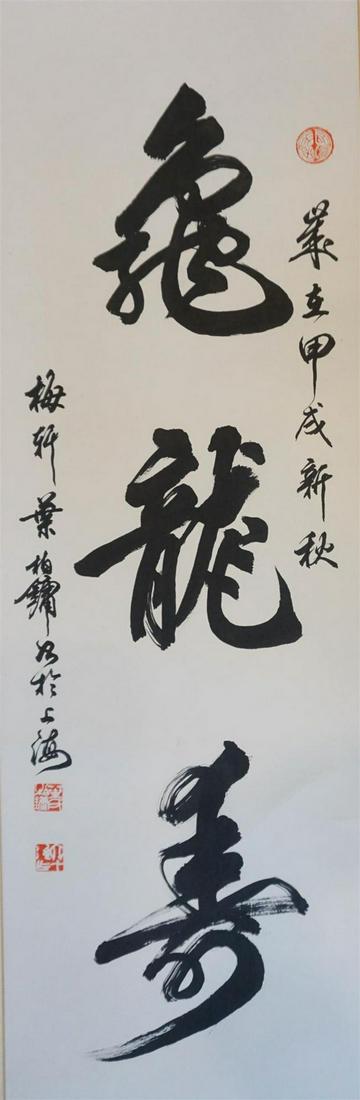 歲在甲戌新秋
龜龍寿
梅軒葉柏鏞書於上海